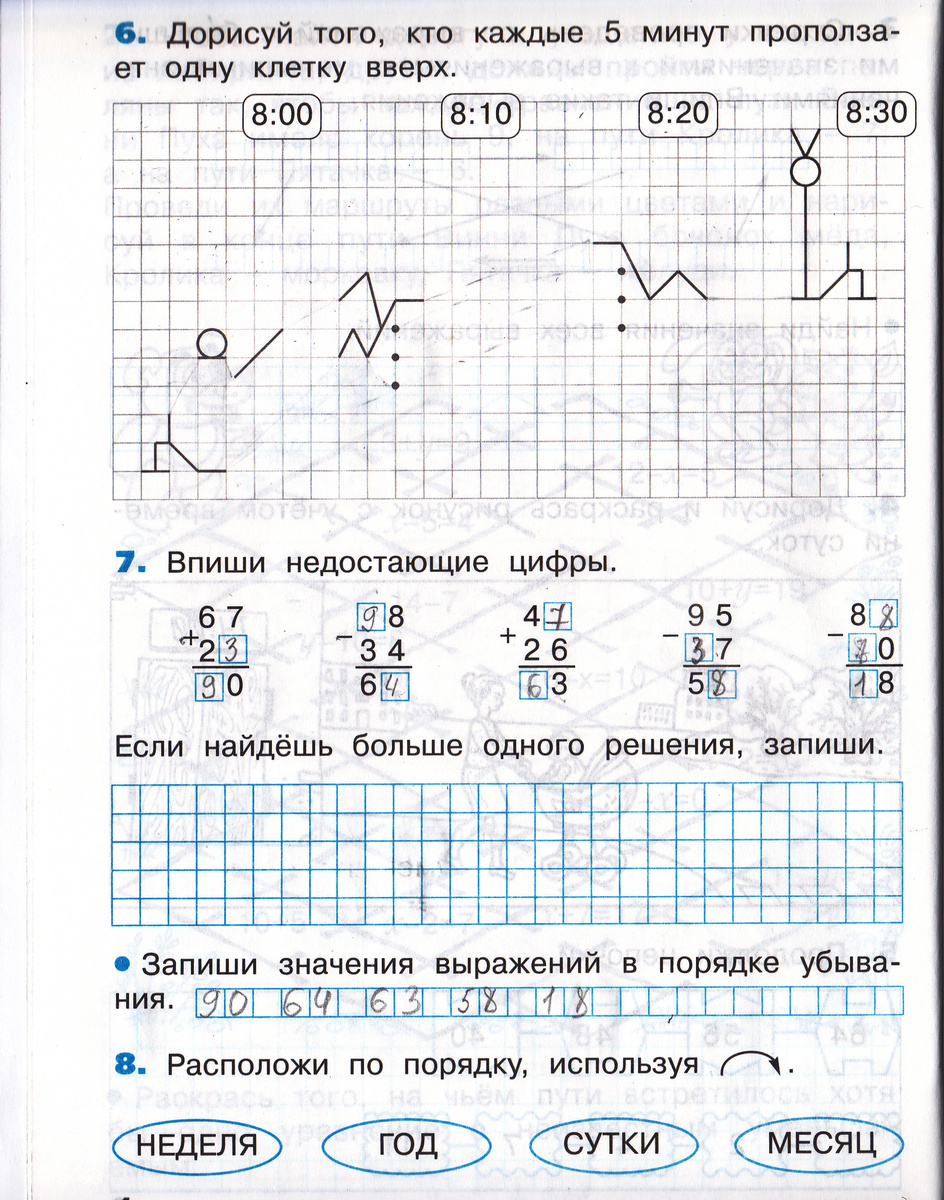 6. Дорисуй того, кто каждые 5 минут прополза-
ет одну клетку вверх.
8:00 8:10 8:20 8:30
7. Впиши недостающие цифры.
67 98 47 95 88
+ - + - -
23 34 26 37 70
90 64 63 58 18
Если найдёшь больше одного решения, запиши.
• Запиши значения выражений в порядке убыва-
ния. 90 64 63 58 18
8. Расположи по порядку, используя .
НЕДЕЛЯ ГОД СУТКИ МЕСЯЦ